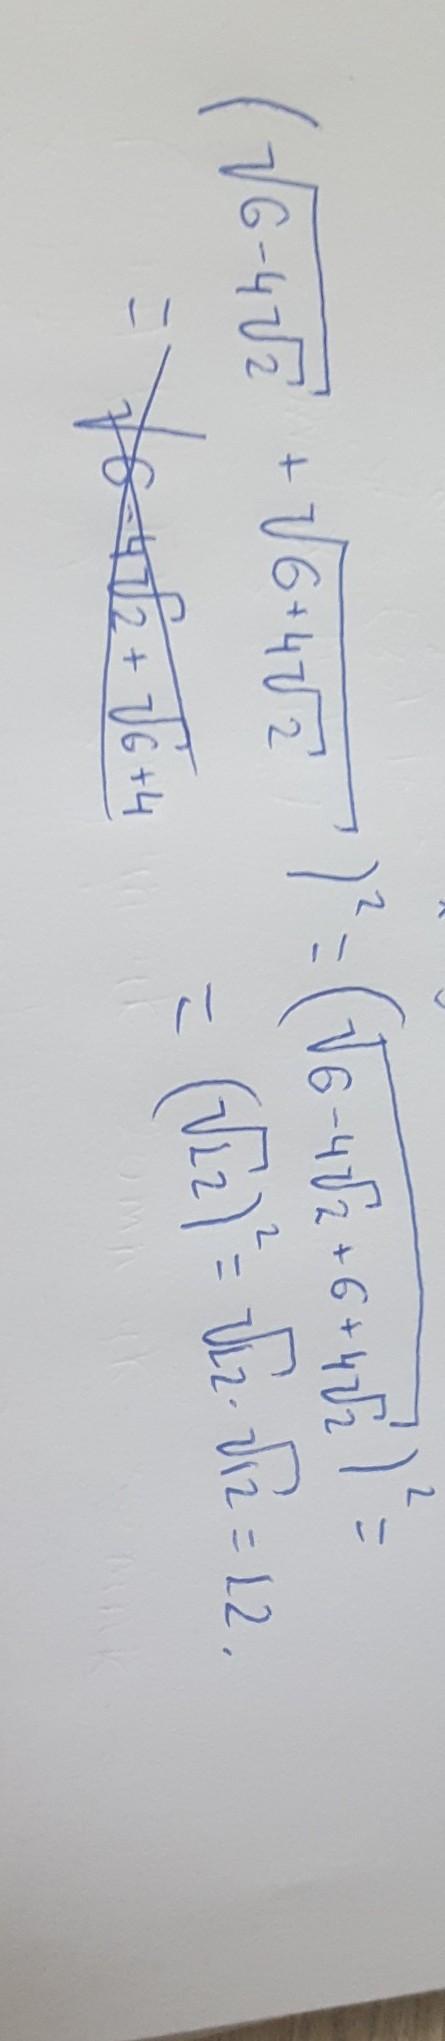 (√(6-4√2) + √(6+4√2))² = (√(6-4√2+6+4√2))² =
= √(6-4√2+√6+4
= (√12)² = √12 · √12 = 12.